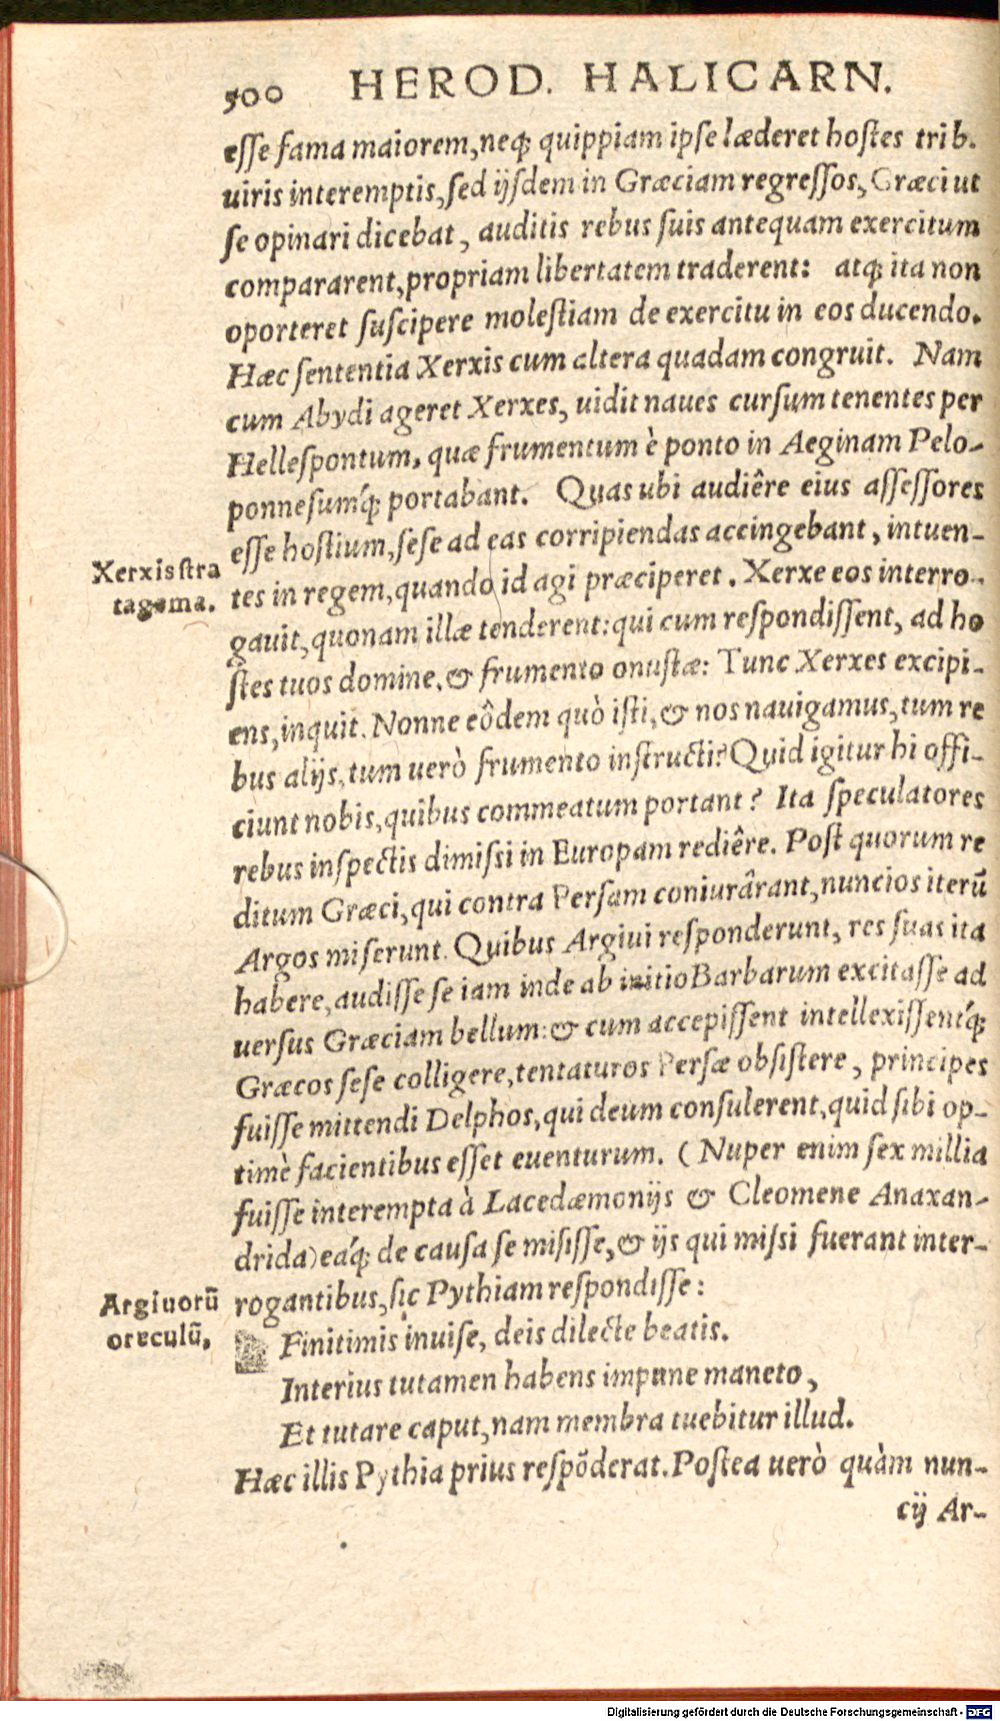 500 HEROD. HALICARN.
eſſe fama maiorem,neq́; quippiam ipſe læderet hoſtes trib.
uiris interemptis,ſed ijſdem in Græciam regreſſos, Græci ut
ſe opinari dicebat, auditis rebus ſuis antequam exercitum
compararent,propriam libertatem traderent: atq; ita non
oporteret ſuſcipere moleſtiam de exercitu in eos ducendo.
Hæc ſententia Xerxis cum altera quadam congruit. Nam
cum Abydi ageret Xerxes, uidit naues curſum tenentes per
Helleſpontum, quæ frumentum è ponto in Aeginam Pelo-
ponneſumq́; portabant. Quas ubi audiêre eius aſſeſſores
eſſe hoſtium,ſeſe ad eas corripiendas accingebant, intuen-
Xerxis ſtra
tagema.
tes in regem,quando id agi præciperet. Xerxe eos interro-
gauit,quonam illæ tenderent:qui cum reſpondiſſent, ad ho
ſtes tuos domine,& frumento onuſtæ: Tunc Xerxes excipi-
ens,inquit. Nonne eôdem quò iſti,& nos nauigamus,tum re
bus alijs,tum uerò frumento inſtructi? Quid igitur hi offi-
ciunt nobis,quibus commeatum portant? Ita ſpeculatores
rebus inſpectis dimiſsi in Europam rediêre. Poſt quorum re
ditum Græci,qui contra Perſam coniurârant,nuncios iterũ
Argos miſerunt. Quibus Argiui reſponderunt, res ſuas ita
habere,audiſſe ſe iam inde ab initio Barbarum excitaſſe ad
uerſus Græciam bellum:& cum accepiſſent intellexiſſentq́;
Græcos ſeſe colligere,tentaturos Perſæ obſiſtere, principes
fuiſſe mittendi Delphos,qui deum conſulerent,quid ſibi op-
timè facientibus eſſet euenturum. (Nuper enim ſex millia
fuiſſe interempta à Lacedæmonijs & Cleomene Anaxan-
drida)eaq́; de cauſa ſe miſiſſe,& ijs qui miſsi fuerant inter-
Argiuorũ
oraculũ.
rogantibus,ſic Pythiam reſpondiſſe:
Finitimis inuiſe, deis dilecte beatis.
Interius tutamen habens impune maneto,
Et tutare caput,nam membra tuebitur illud.
Hæc illis Pythia prius reſpõderat. Poſtea uerò quàm nun-
cij Ar-
Digitalisierung gefördert durch die Deutsche Forschungsgemeinschaft - DFG